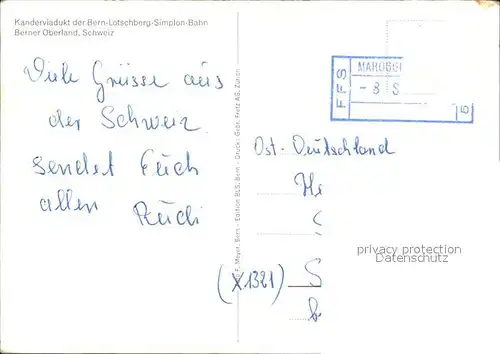 Kanderviadukt der Bern-Lötschberg-Simplon-Bahn
Berner Oberland, Schweiz
Viele Grüsse aus
der Schweiz
sendet Euch
allen Rudi
F. Meyer, Bern - Edition BLS, Bern - Druck: Gebr. Fretz AG, Zürich
FFS
MAROGGI
- 8 S
Ost-Deutschland
He
S
(X1321)
b.
privacy protection
Datenschutz